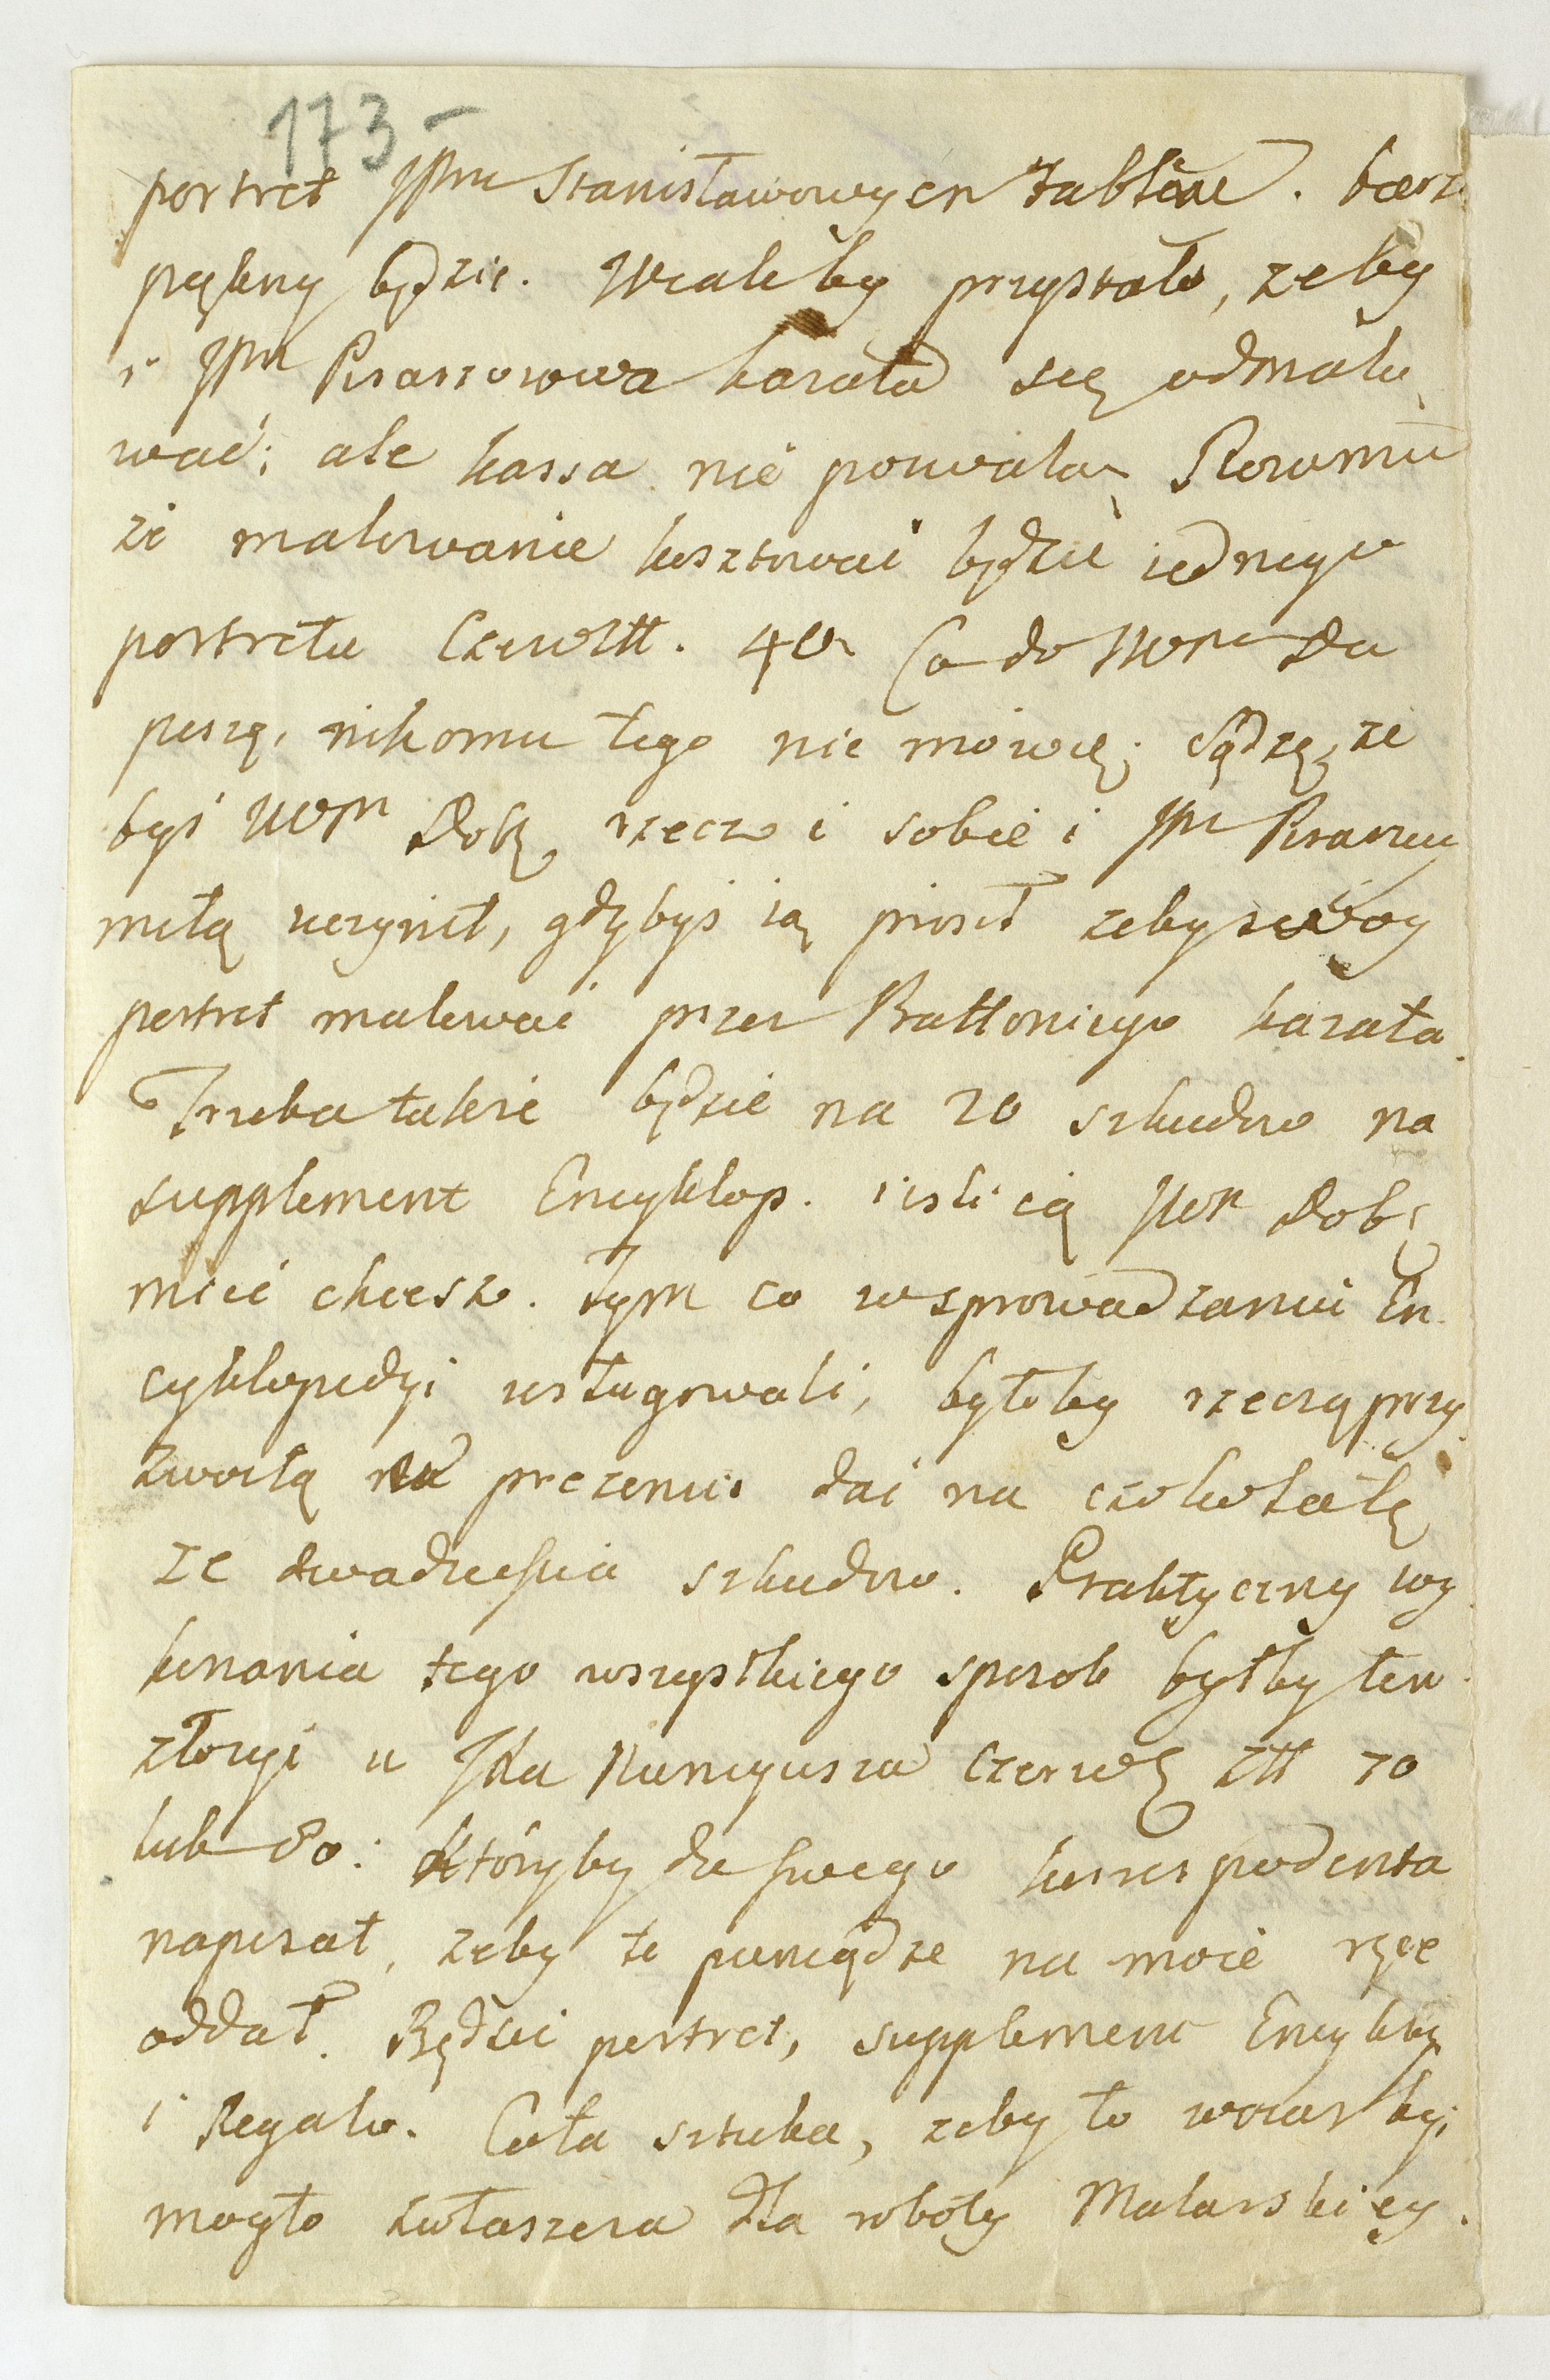 173-
portret JPni Stanisławowy en Tableau. barz
pękny będzie. Wcaleby przystało, zeby
i JPni Pisarzowa kazała się odmalo
wać; ale kassa nie pozwala. Rozumie
ze malowanie kosztować będzie iednego
portretu Czerw. Złł. 40. Co do WPna Da
piszę, nikomu tego nie mówię; sądzę, ze
byś WPn Dobr. rzecz i sobie i JPni Pisarzowy
miłą uczynił, gdybyś ią prosił zeby swoy
portret malować przez Battoniego kazała.
Trzeba także będzie na 20 szkudow na
supplement Encyklop. iesli ią WPn Dobr
mieć chcesz. Tym co w sprowadzaniu En
cyklopedyi usługowali, byłoby rzeczą przy
zwoitą na prezencie dać na czokolatę
ze dwadzieścia szkudow. Praktyczny wy
konania tego wszystkiego sposob byłby ten
złozyć u JKa Nuncyusza czerwo Złł 70
lub 80: któryby do swego korrespodenta
napisał, zeby te pieniądze na moie ręce
oddał. Będzie portret, supplement Encyklop
i Regalo. Cała sztuka, zeby to wczas być
mogło zwłaszcza dla roboty Malarskiey.